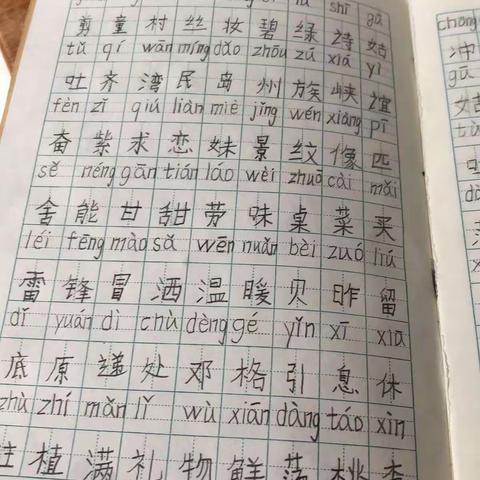 shī gū
剪 童 村 丝 妆 碧 绿 诗 姑
tǔ qí wān míng dǎo zhōu zú xiá yì
吐 齐 湾 民 岛 州 族 峡 谊
fèn zǐ qiú liàn mèi jǐng wén xiàng pī
奋 紫 求 恋 妹 景 纹 像 匹
sě néng gān tián láo wèi zhuō cài mǎi
舍 能 甘 甜 劳 味 桌 菜 买
léi fēng mào sǎ wēn nuǎn bèi zuó liú
雷 锋 冒 洒 温 暖 贝 昨 留
dǐ yuán dì chù dèng gé yǐn xī xiū
底 原 递 处 邓 格 引 息 休
zhù zhí mǎn lǐ wù xiān dàng táo xìn
植 满 礼 物 鲜 荡 桃
chōng
冲
gū
姑